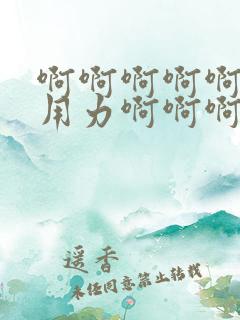 啊啊啊啊啊
用力啊啊啊
遥香
未经同意禁止转载